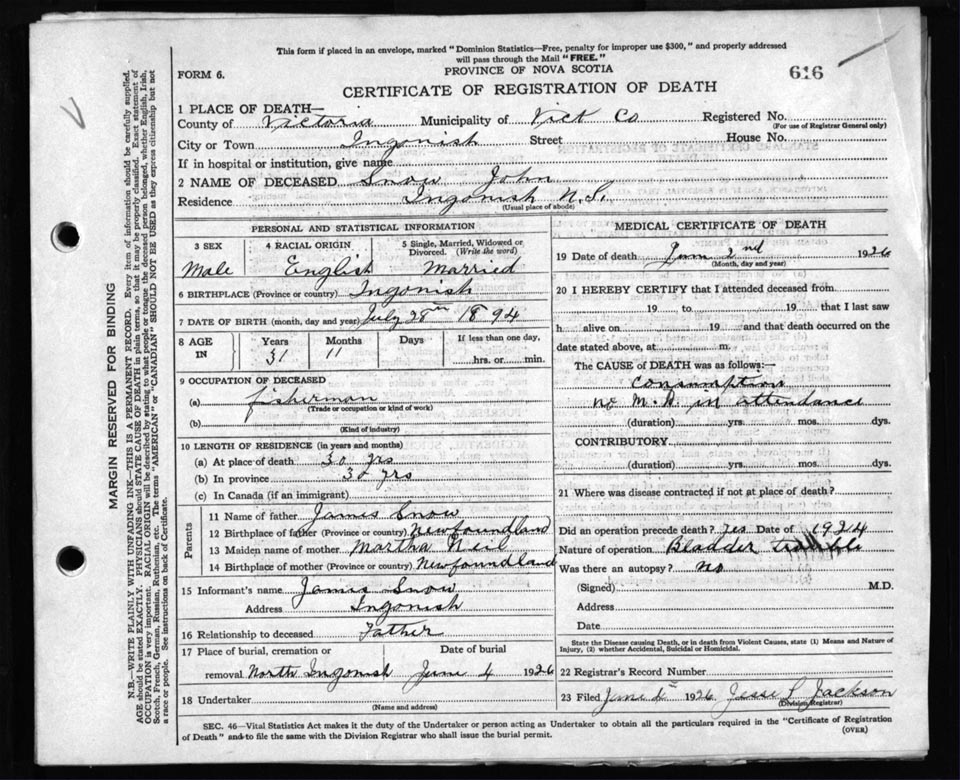 This form if placed in an envelope, marked "Dominion Statistics—Free, penalty for improper use $300," and properly addressed
will pass through the Mail "FREE."
FORM 6.
PROVINCE OF NOVA SCOTIA
616
CERTIFICATE OF REGISTRATION OF DEATH
1 PLACE OF DEATH—
County of Victoria Municipality of Vict Co Registered No.
(For use of Registrar General only)
City or Town Ingonish Street House No.
If in hospital or institution, give name
2 NAME OF DECEASED Snow John
Residence Ingonish N.S.
(Usual place of abode)
PERSONAL AND STATISTICAL INFORMATION
3 SEX 4 RACIAL ORIGIN 5 Single, Married, Widowed or Divorced. (Write the word)
Male English Married
6 BIRTHPLACE (Province or country) Ingonish
7 DATE OF BIRTH (month, day and year) July 28th 1894
8 AGE IN Years Months Days If less than one day,
31 11 hrs. or min.
9 OCCUPATION OF DECEASED
(a) fisherman
(Trade or occupation or kind of work)
(b)
(Kind of industry)
10 LENGTH OF RESIDENCE (in years and months)
(a) At place of death 30 yrs
(b) In province 30 yrs
(c) In Canada (if an immigrant)
Parents
11 Name of father James Snow
12 Birthplace of father (Province or country) Newfoundland
13 Maiden name of mother Martha Neil
14 Birthplace of mother (Province or country) Newfoundland
15 Informant's name James Snow
Address Ingonish
16 Relationship to deceased Father
17 Place of burial, cremation or Date of burial
removal North Ingonish June 4 1926
18 Undertaker
(Name and address)
MEDICAL CERTIFICATE OF DEATH
19 Date of death June 2nd 1926
(Month, day and year)
20 I HEREBY CERTIFY that I attended deceased from
19 to 19 that I last saw
h alive on 19 and that death occurred on the
date stated above, at m.
The CAUSE of DEATH was as follows:—
Consumption
no M.D. in attendance
(duration) yrs. mos. dys.
CONTRIBUTORY
(duration) yrs. mos. dys.
21 Where was disease contracted if not at place of death?
Did an operation precede death? yes Date of 1924
Nature of operation Bladder trouble
Was there an autopsy? no
(Signed) M.D.
Address
Date
State the Disease causing Death, or in death from Violent Causes, state (1) Means and Nature of
Injury, (2) whether Accidental, Suicidal or Homicidal.
22 Registrar's Record Number
23 Filed June 1926 Jesse L Jackson
(Division Registrar)
SEC. 46—Vital Statistics Act makes it the duty of the Undertaker or person acting as Undertaker to obtain all the particulars required in the "Certificate of Registration
of Death" and to file the same with the Division Registrar who shall issue the burial permit.
(OVER)
MARGIN RESERVED FOR BINDING
N.B.—WRITE PLAINLY WITH UNFADING INK—THIS IS A PERMANENT RECORD. Every item of information should be carefully supplied.
AGE should be stated EXACTLY. PHYSICIANS should STATE CAUSE OF DEATH in plain terms, so that it may be properly classified. Exact statement of
OCCUPATION is very important. RACIAL ORIGIN will be described by stating to what people or tongue the deceased person belonged, whether English, Irish,
Scotch, French, German, Russian, Ruthenian, etc. The terms "AMERICAN" or "CANADIAN" SHOULD NOT BE USED as they express citizenship but not
a race or people. See instructions on back of Certificate.